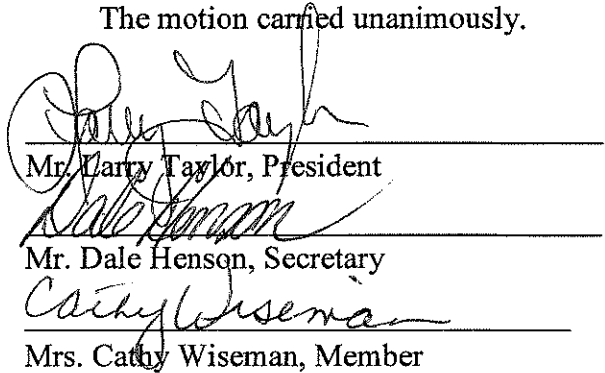 The motion carried unanimously.
Larry Taylor
Mr. Larry Taylor, President
Dale Henson
Mr. Dale Henson, Secretary
Cathy Wiseman
Mrs. Cathy Wiseman, Member